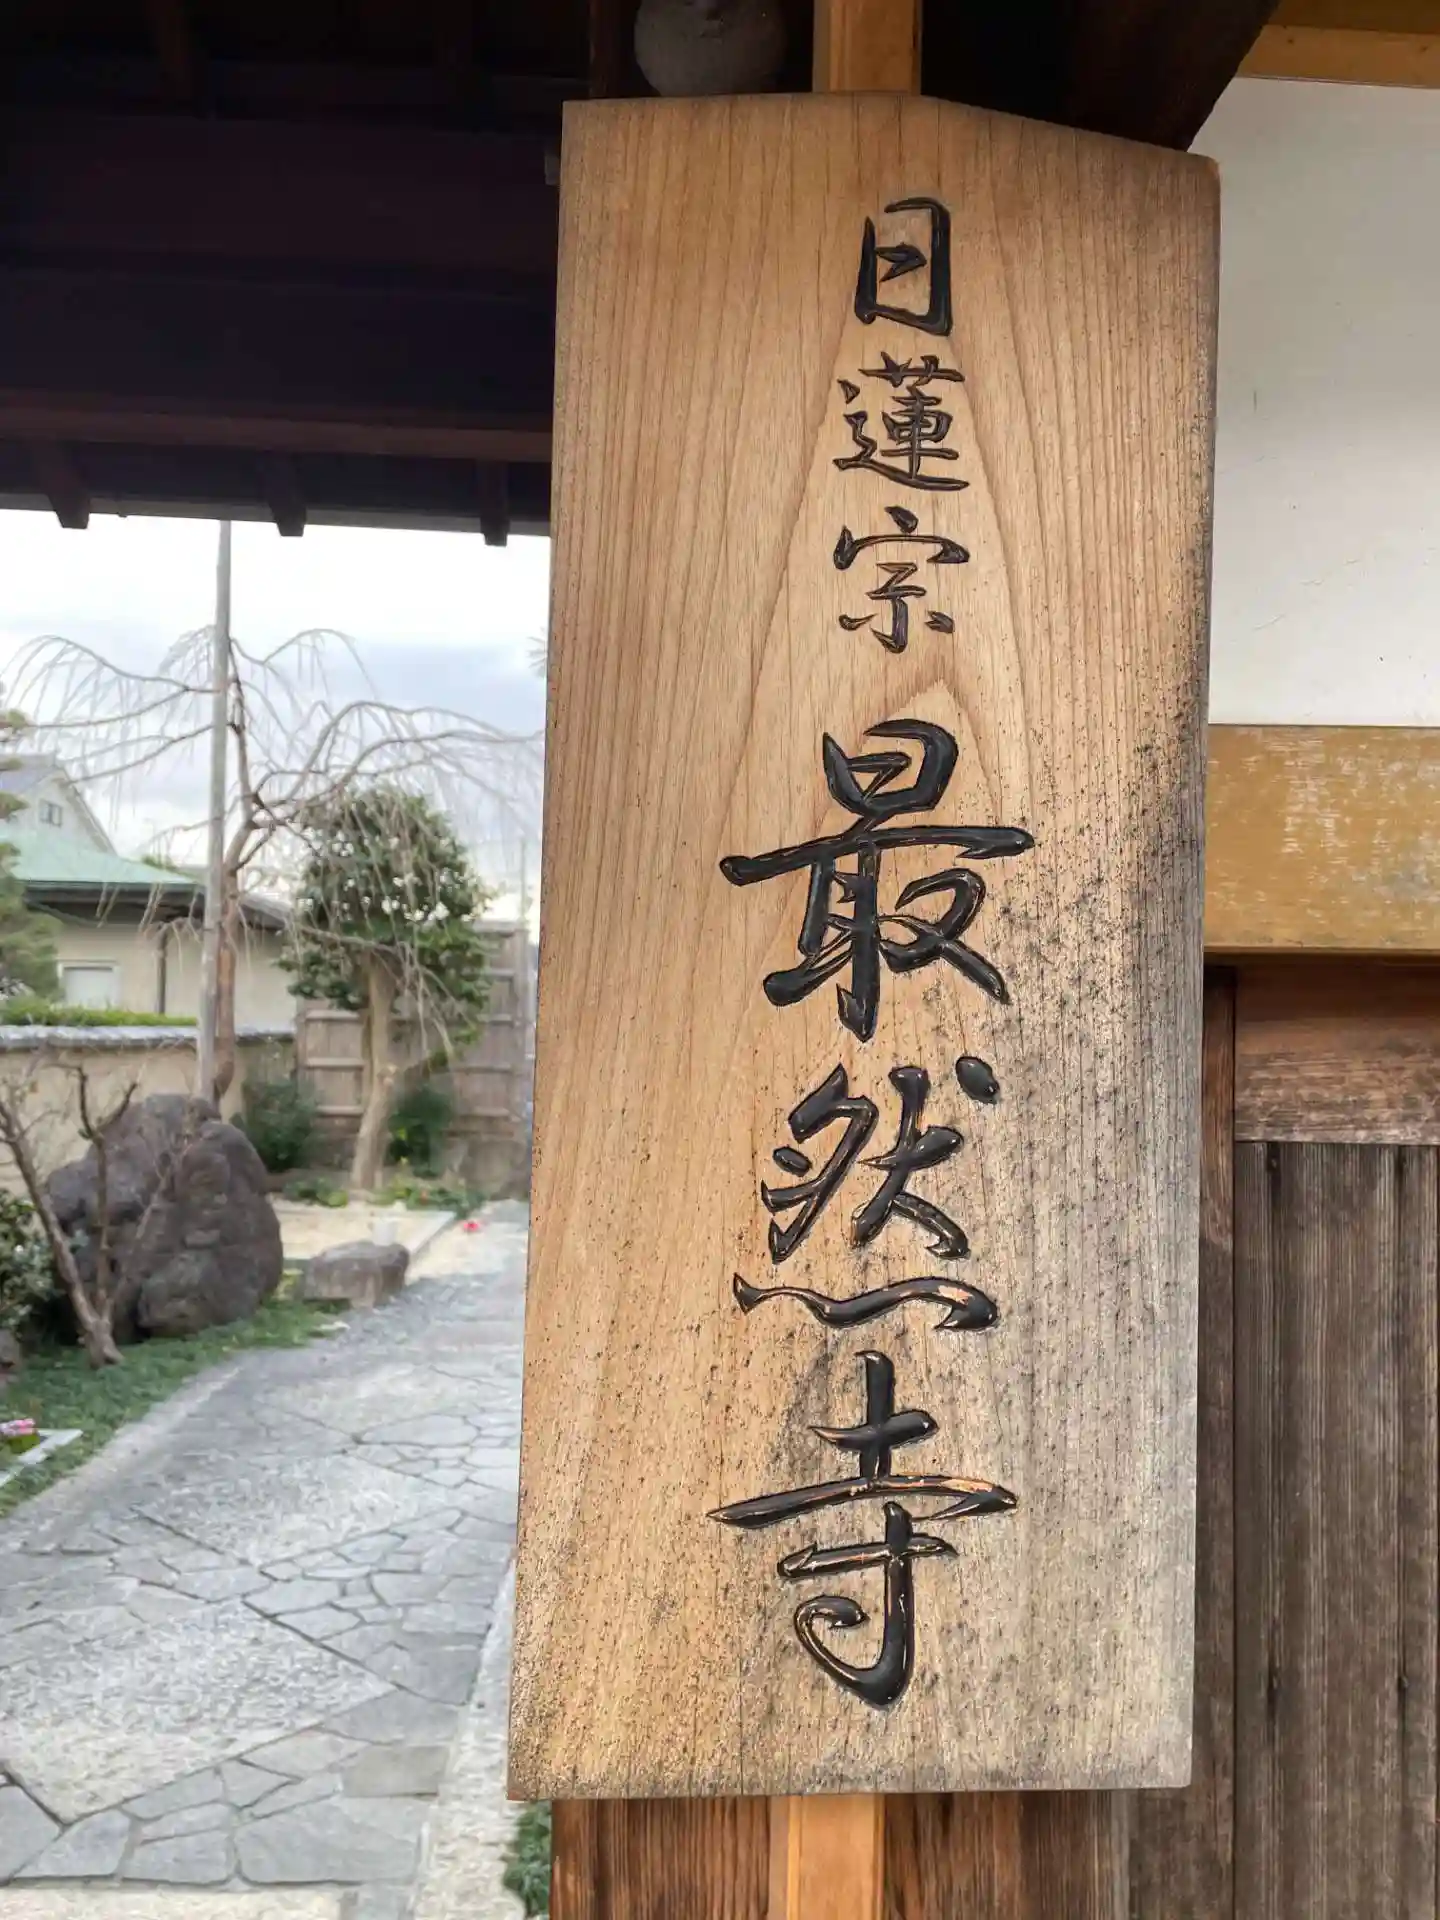 日蓮宗最然寺